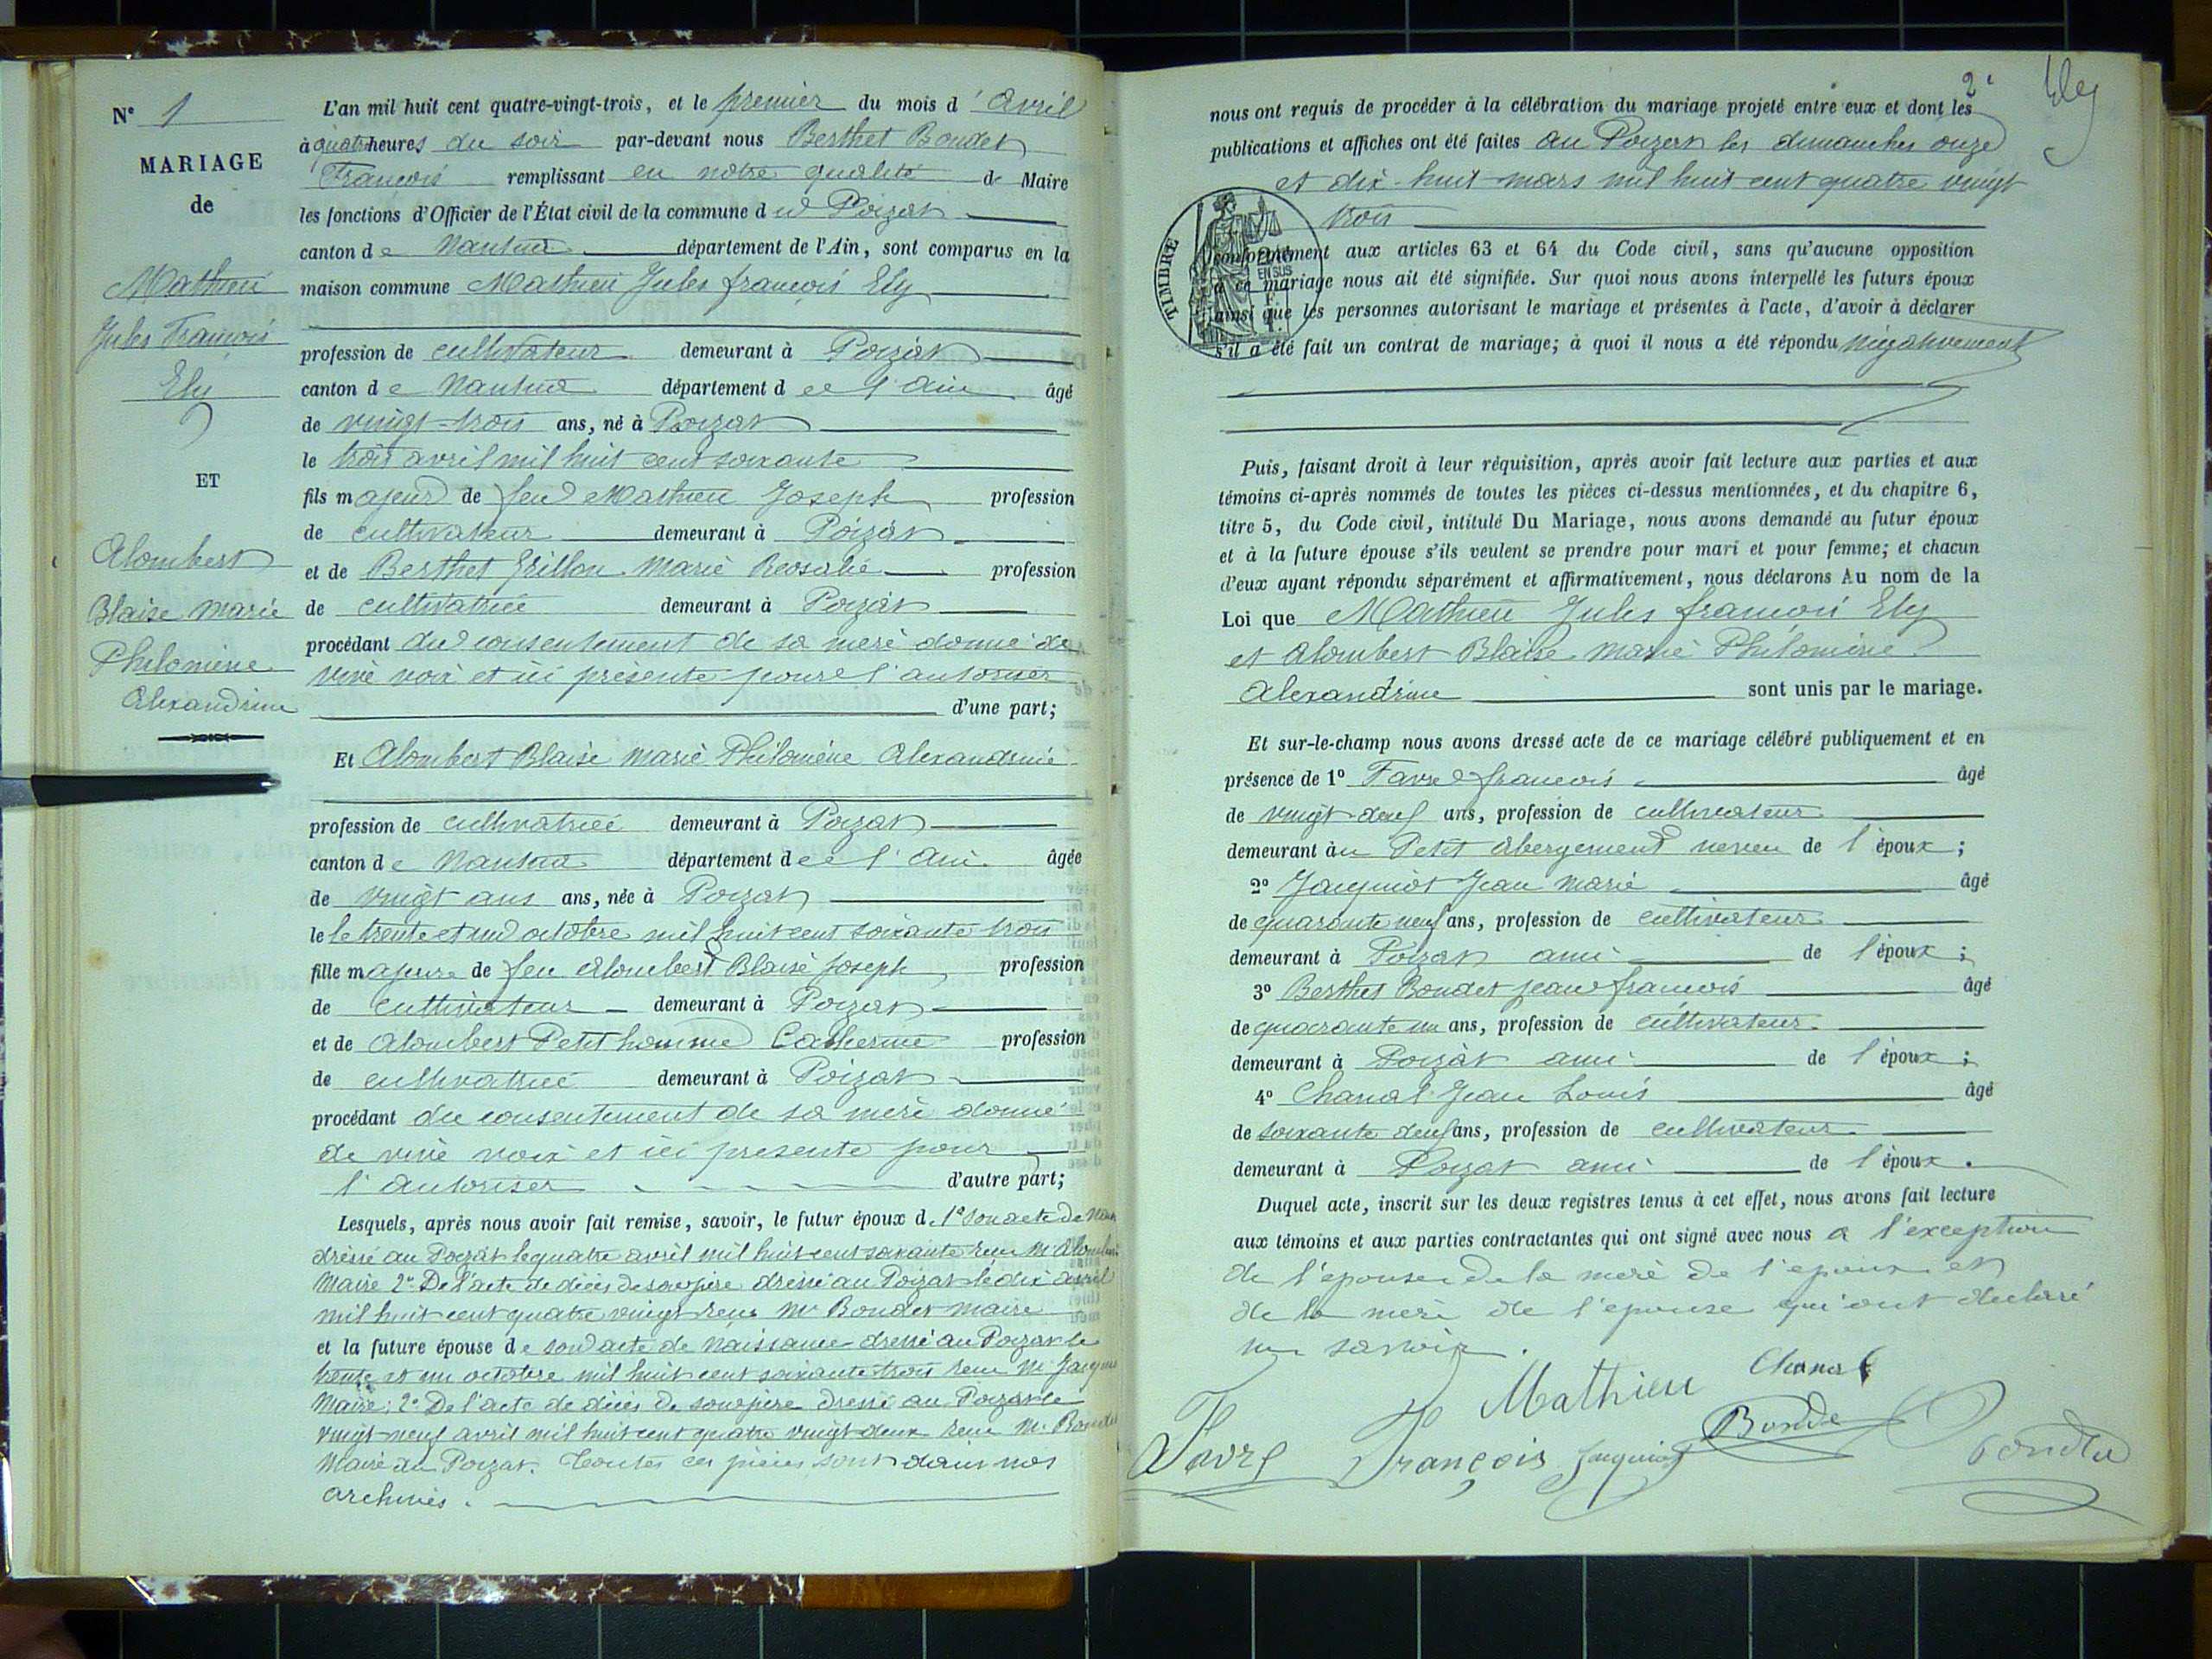 N° 1
MARIAGE
de
Mathieu
Jules François
Ely
ET
Alombert
Blaise Marie
Philomène
Alexandrine
L'an mil huit cent quatre-vingt-trois, et le premier du mois d'Avril
à quatre heures du soir par-devant nous Berthet Bondet
François remplissant en notre qualité de Maire
les fonctions d'Officier de l'État civil de la commune du Poizat
canton de Nantua département de l'Ain, sont comparus en la
maison commune Mathieu Jules françois Ely
profession de cultivateur demeurant à Poizat
canton de Nantua département de l'Ain âgé
de vingt-trois ans, né à Poizat
le trois avril mil huit cent soixante
fils majeur de feu Mathieu Joseph profession
de cultivateur demeurant à Poizat
et de Berthet Grillon Marie Rosalie profession
de cultivatrice demeurant à Poizat
procédant du consentement de sa mère donné de
vive voix et ici présente pour l'autoriser
d'une part;
Et Alombert Blaise Marie Philomène Alexandrine
profession de cultivatrice demeurant à Poizat
canton de Nantua département de l'Ain âgée
de vingt ans ans, née à Poizat
le le trente et un octobre mil huit cent soixante trois
fille majeure de feu Alombert Blaise Joseph profession
de cultivateur demeurant à Poizat
et de Alombert Petit homme Catherine profession
de cultivatrice demeurant à Poizat
procédant du consentement de sa mère donné
de vive voix et ici présente pour
l'autoriser d'autre part;
Lesquels, après nous avoir fait remise, savoir, le futur époux d. 1° Son acte de
dressé au Poizat le quatre avril mil huit cent soixante reçu Mr
Maire 2° De l'acte de décès de son père dressé au Poizat le dix avril
mil huit cent quatre vingt reçu Mr Bondet maire
et la future épouse de son acte de naissance dressé au Poizat le
trente et un octobre mil huit cent soixante trois reçu Mr
Maire; 2° De l'acte de décès de son père dressé au Poizat le
vingt-neuf avril mil huit cent quatre vingt deux reçu Mr.
Maire du Poizat. Toutes ces pièces sont dans nos
archives.
2e Ely
nous ont requis de procéder à la célébration du mariage projeté entre eux et dont les
publications et affiches ont été faites au Poizat les dimanches onze
et dix-huit mars mil huit cent quatre vingt
trois
TIMBRE
EN SUS
conformément aux articles 63 et 64 du Code civil, sans qu'aucune opposition
à ce mariage nous ait été signifiée. Sur quoi nous avons interpellé les futurs époux
ainsi que les personnes autorisant le mariage et présentes à l'acte, d'avoir à déclarer
s'il a été fait un contrat de mariage; à quoi il nous a été répondu négativement
Puis, faisant droit à leur réquisition, après avoir fait lecture aux parties et aux
témoins ci-après nommés de toutes les pièces ci-dessus mentionnées, et du chapitre 6,
titre 5, du Code civil, intitulé Du Mariage, nous avons demandé au futur époux
et à la future épouse s'ils veulent se prendre pour mari et pour femme; et chacun
d'eux ayant répondu séparément et affirmativement, nous déclarons Au nom de la
Loi que Mathieu Jules françois Ely
et Alombert Blaise Marie Philomène
Alexandrine sont unis par le mariage.
Et sur-le-champ nous avons dressé acte de ce mariage célébré publiquement et en
présence de 1° Favre françois âgé
de vingt-neuf ans, profession de cultivateur
demeurant au Petit Abergement neveu de l'époux;
2° Jacquiot Jean Marie âgé
de quarante neuf ans, profession de cultivateur
demeurant à Poizat ami de l'époux;
3° Berthet Bondet jean françois âgé
de quarante un ans, profession de cultivateur
demeurant à Poizat ami de l'époux;
4° Chanal Jean Louis âgé
de soixante ans, profession de cultivateur
demeurant à Poizat ami de l'époux.
Duquel acte, inscrit sur les deux registres tenus à cet effet, nous avons fait lecture
aux témoins et aux parties contractantes qui ont signé avec nous à l'exception
de l'épouse de la mère de l'époux et
de la mère de l'épouse qui ont déclaré
ne savoir.
Mathieu Chanal
Favre François Jacquiot Bonde